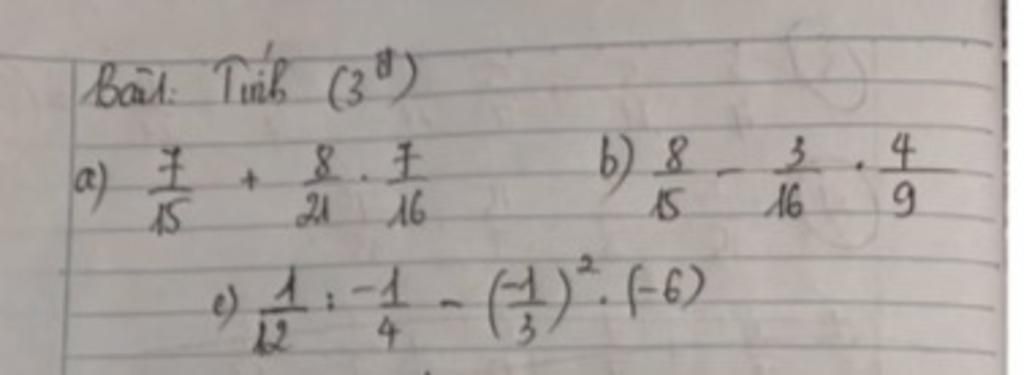 Bài 1: Tính (3đ)
a) 7/15 + 8/21 . 7/16 b) 8/15 - 3/16 . 4/9
c) 1/12 : -1/4 - (-1/3)² . (-6)